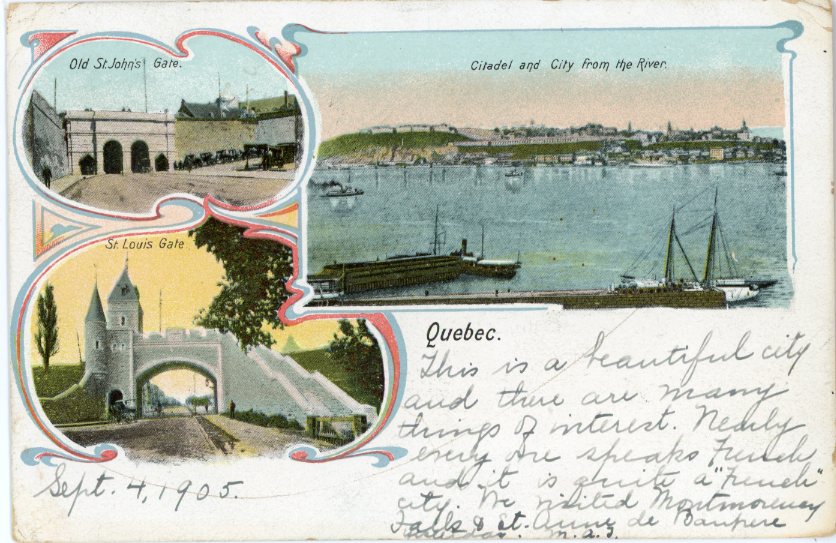 Old St. John's Gate.
Citadel and City from the River.
St. Louis Gate.
Quebec.
This is a beautiful city
and there are many
things of interest. Nearly
every one speaks French
and it is quite a "French"
city. We visited Montmorency
Falls & St. Anne de Baupere
M.A.S.
Sept. 4, 1905.